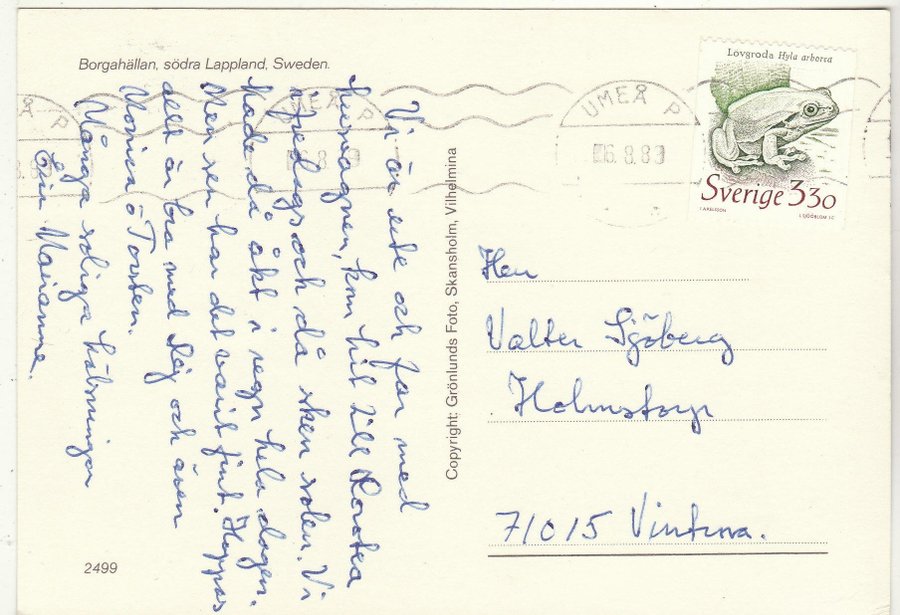 Borgahällan, södra Lappland, Sweden.
Vi är ute och far med
husvagnen, kom hit till Dorotea
i fredags och då sken solen. Vi
hade då åkt i regn hela dagen.
Men sen har det varit fint. Hoppas
allt är bra med Dig och även
Monica o Torsten.
Många soliga hälsningar
Elin Marianne.
2499
Copyright: Grönlunds Foto, Skansholm, Vilhelmina
UMEÅ P
6.8.89
UMEÅ P
6.8.89
Lövgroda Hyla arborea
Sverige 330
Herr
Valter Sjöberg
Holmstorp
71015 Vintrosa.